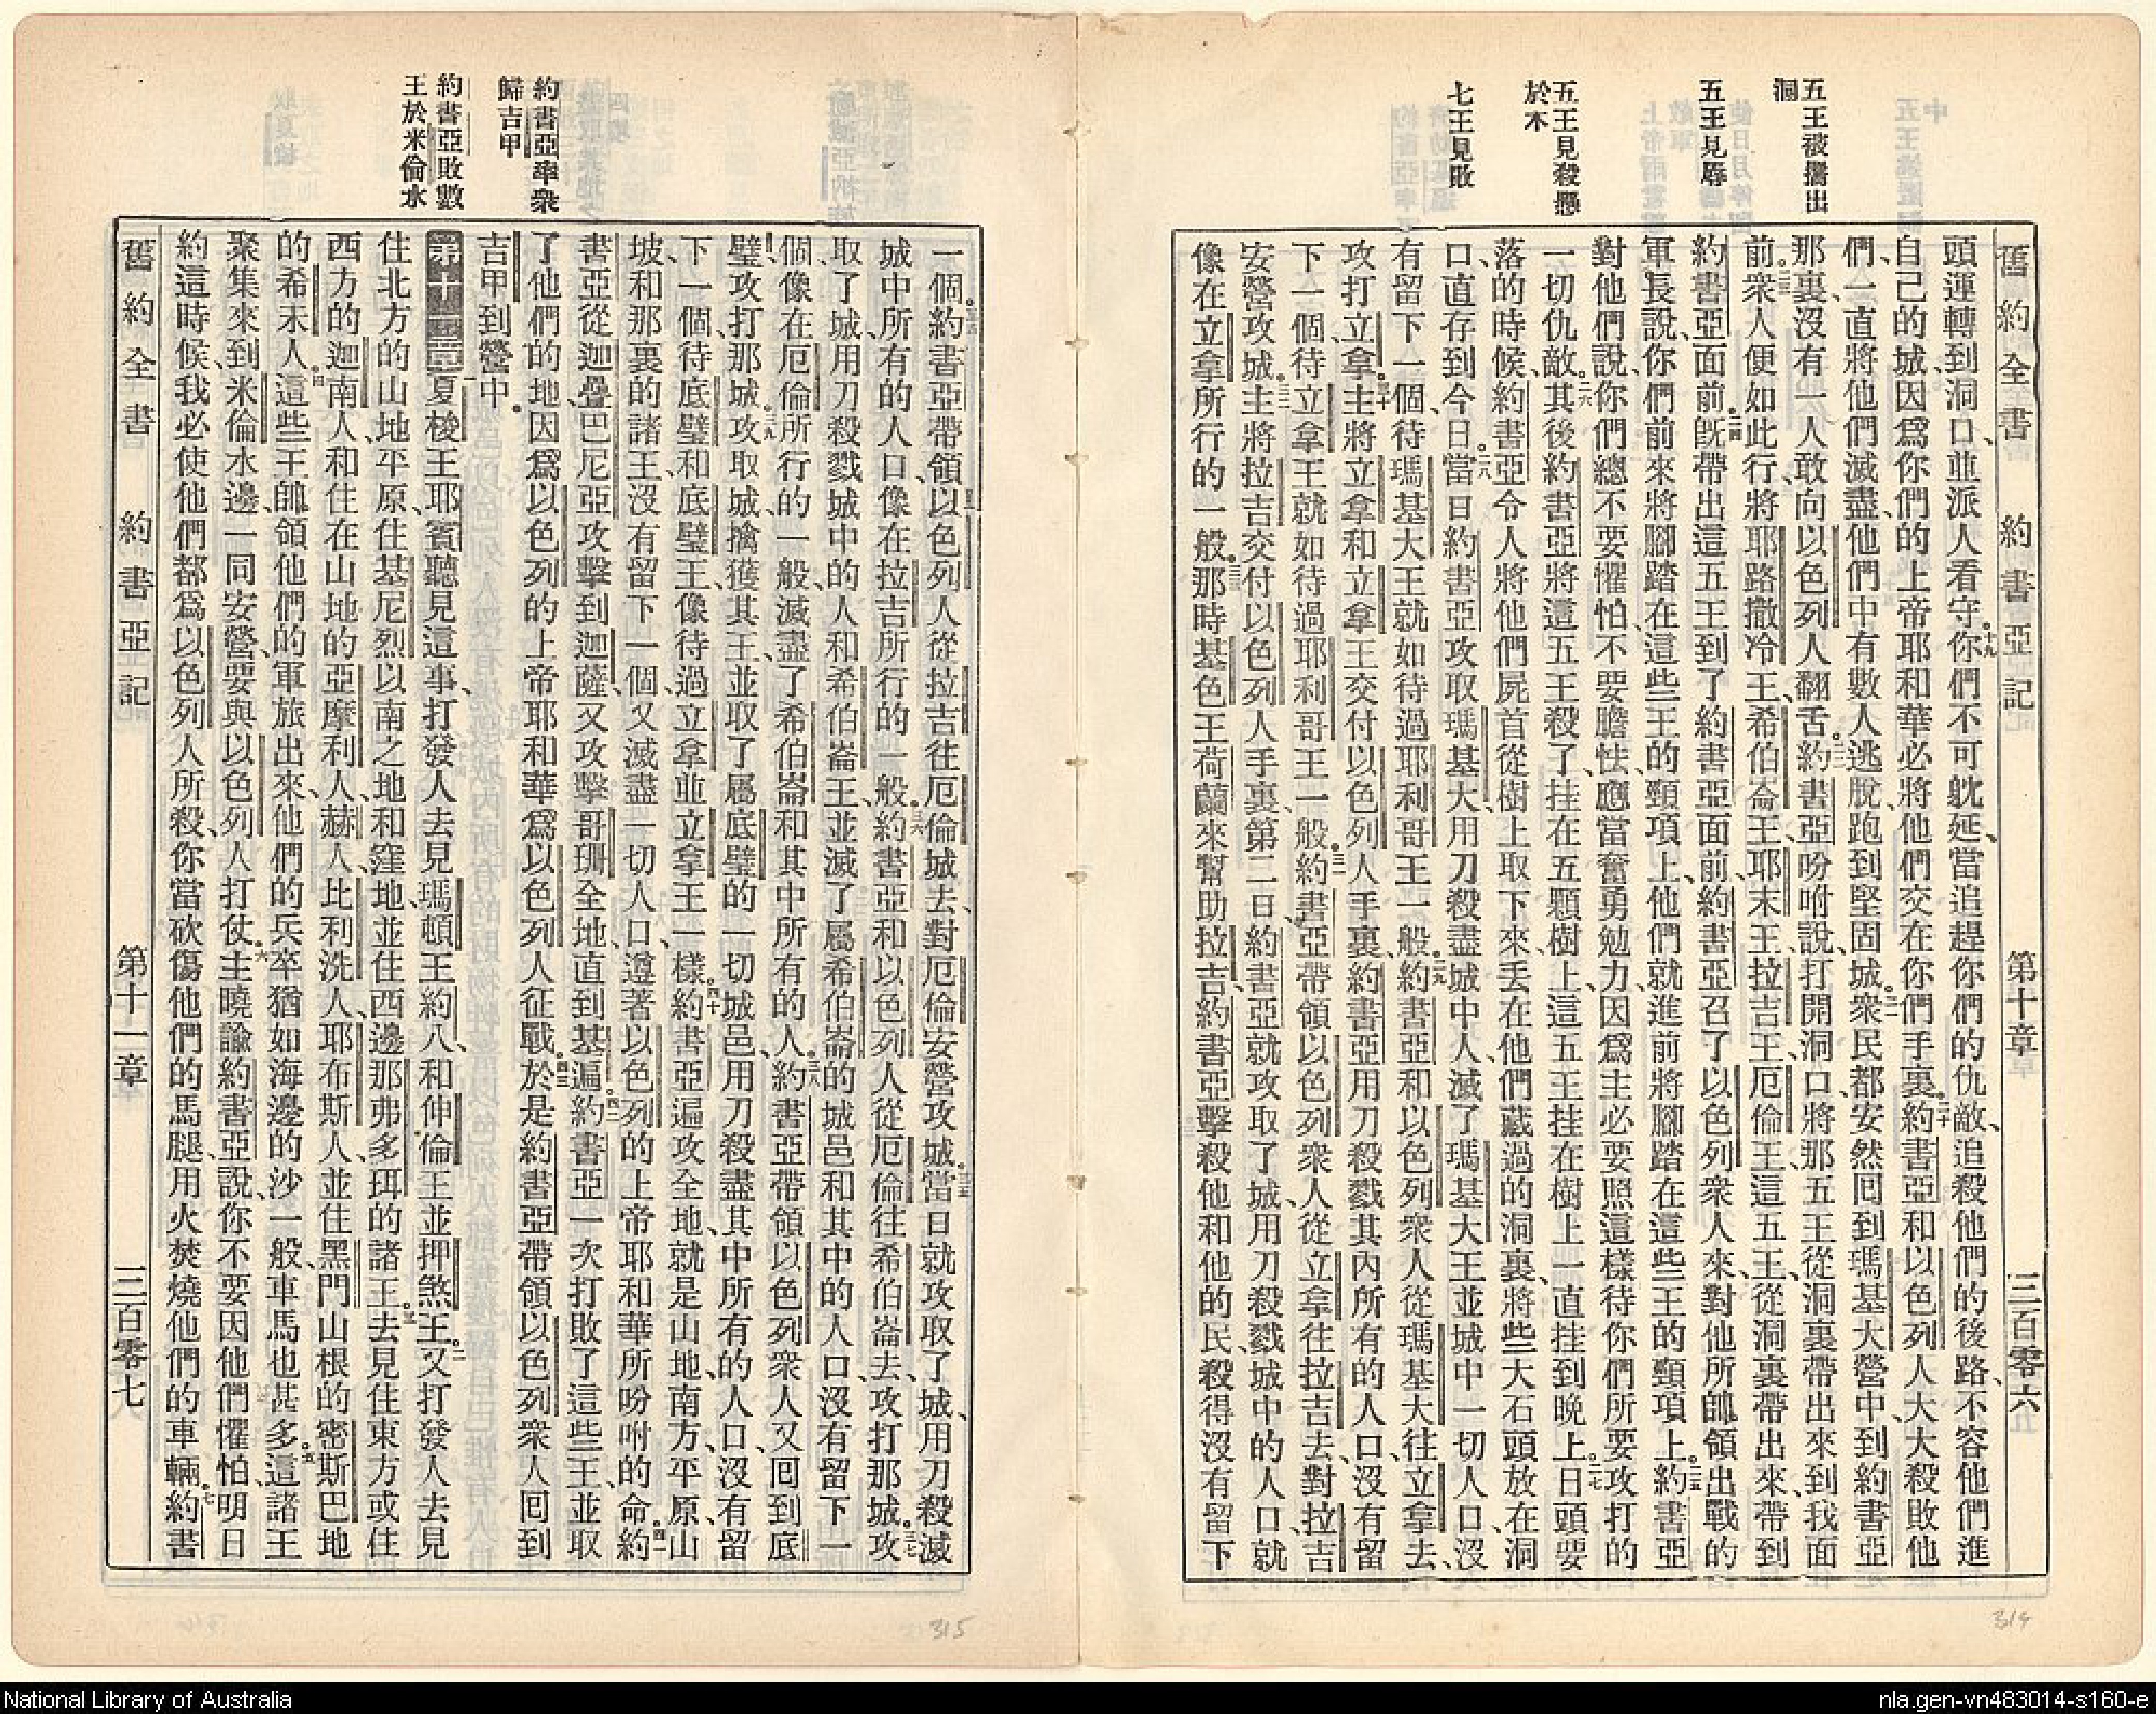 舊約全書 約書亞記 第十章 三百零六
五王被攜出
洞
五王見辱
五王見殺懸
於木
七王見敗
頭運轉到洞口、並派人看守。十九你們不可躭延、當追趕你們的仇敵、追殺他們的後路、不容他們進
自己的城、因爲你們的上帝耶和華必將他們交在你們手裏。二十約書亞和以色列人大大殺敗他
們、一直將他們滅盡、他們中有數人逃脫、跑到堅固城。二一衆民都安然囘到瑪基大營中、到約書亞
那裏、沒有一人敢向以色列人翻舌。二二約書亞吩咐說、打開洞口、將那五王從洞裏帶出來、到我面
前。二三衆人便如此行、將耶路撒冷王、希伯崙王、耶末王、拉吉王、厄倫王、這五王、從洞裏帶出來、帶到
約書亞面前。二四旣帶出這五王到了約書亞面前、約書亞召了以色列衆人來、對他所帥領出戰的
軍長說、你們前來將腳踏在這些王的頸項上、他們就進前將腳踏在這些王的頸項上。二五約書亞
對他們說、你們總不要懼怕、不要膽怯、應當奮勇勉力、因爲主必要照這樣待你們所要攻打的
一切仇敵。二六其後約書亞將這五王殺了、挂在五顆樹上、這五王挂在樹上、一直挂到晚上。二七日頭要
落的時候、約書亞令人將他們屍首從樹上取下來、丟在他們藏過的洞裏、將些大石頭放在洞
口、直存到今日。二八當日約書亞攻取瑪基大、用刀殺盡城中人、滅了瑪基大王、並城中一切人口、沒
有留下一個、待瑪基大王就如待過耶利哥王一般。二九約書亞和以色列衆人從瑪基大往立拿去、
攻打立拿。三十主將立拿和立拿王交付以色列人手裏、約書亞用刀殺戮其內所有的人口、沒有留
下一個、待立拿王就如待過耶利哥王一般。三一約書亞帶領以色列衆人從立拿往拉吉去、對拉吉
安營攻城。三二主將拉吉交付以色列人手裏、第二日、約書亞就攻取了城、用刀殺戮城中的人口、就
像在立拿所行的一般。三三那時基色王荷蘭來幫助拉吉、約書亞擊殺他和他的民、殺得沒有留下
一個。三四約書亞帶領以色列人從拉吉往厄倫城去、對厄倫安營攻城。三五當日就攻取了城、用刀殺滅
城中所有的人口、像在拉吉所行的一般。三六約書亞和以色列人從厄倫往希伯崙去、攻打那城。三七攻
取了城、用刀殺戮城中的人和希伯崙王、並滅了屬希伯崙的城邑和其中的人口、沒有留下一
個、像在厄倫所行的一般、滅盡了希伯崙和其中所有的人。三八約書亞帶領以色列衆人、又囘到底
璧、攻打那城。三九攻取城、擒獲其王、並取了屬底璧的一切城邑、用刀殺盡其中所有的人口、沒有留
下一個、待底璧和底璧王、像待過立拿並立拿王一樣。四十約書亞遍攻全地、就是山地、南方、平原、山
坡、和那裏的諸王、沒有留下一個、又滅盡一切人口、遵著以色列的上帝耶和華所吩咐的命。四一約
書亞從迦疊巴尼亞攻擊到迦薩、又攻擊哥珊全地、直到基遍。四二約書亞一次打敗了這些王、並取
了他們的地、因爲以色列的上帝耶和華爲以色列人征戰。四三於是約書亞帶領以色列衆人囘到
吉甲到營中。
約書亞率衆
歸吉甲
約書亞敗數
王於米倫水
第十一章一夏梭王耶賓聽見這事、打發人去見瑪頓王約八、和伸倫王、並押煞王。二又打發人去見
住北方的山地、平原、住基尼烈以南之地、和窪地、並住西邊那弗多珥的諸王。三去見住東方或住
西方的迦南人、和住在山地的亞摩利人、赫人、比利洗人、耶布斯人、並住黑門山根的密斯巴地
的希未人。四這些王帥領他們的軍旅出來、他們的兵卒猶如海邊的沙一般、車馬也甚多。五這諸王
聚集來到米倫水邊、一同安營、要與以色列人打仗。六主曉諭約書亞說、你不要因他們懼怕、明日
約這時候、我必使他們都爲以色列人所殺、你當砍傷他們的馬腿、用火焚燒他們的車輛。七約書
舊約全書 約書亞記 第十一章 三百零七
314
315
National Library of Australia
nla.gen-vn483014-s160-e